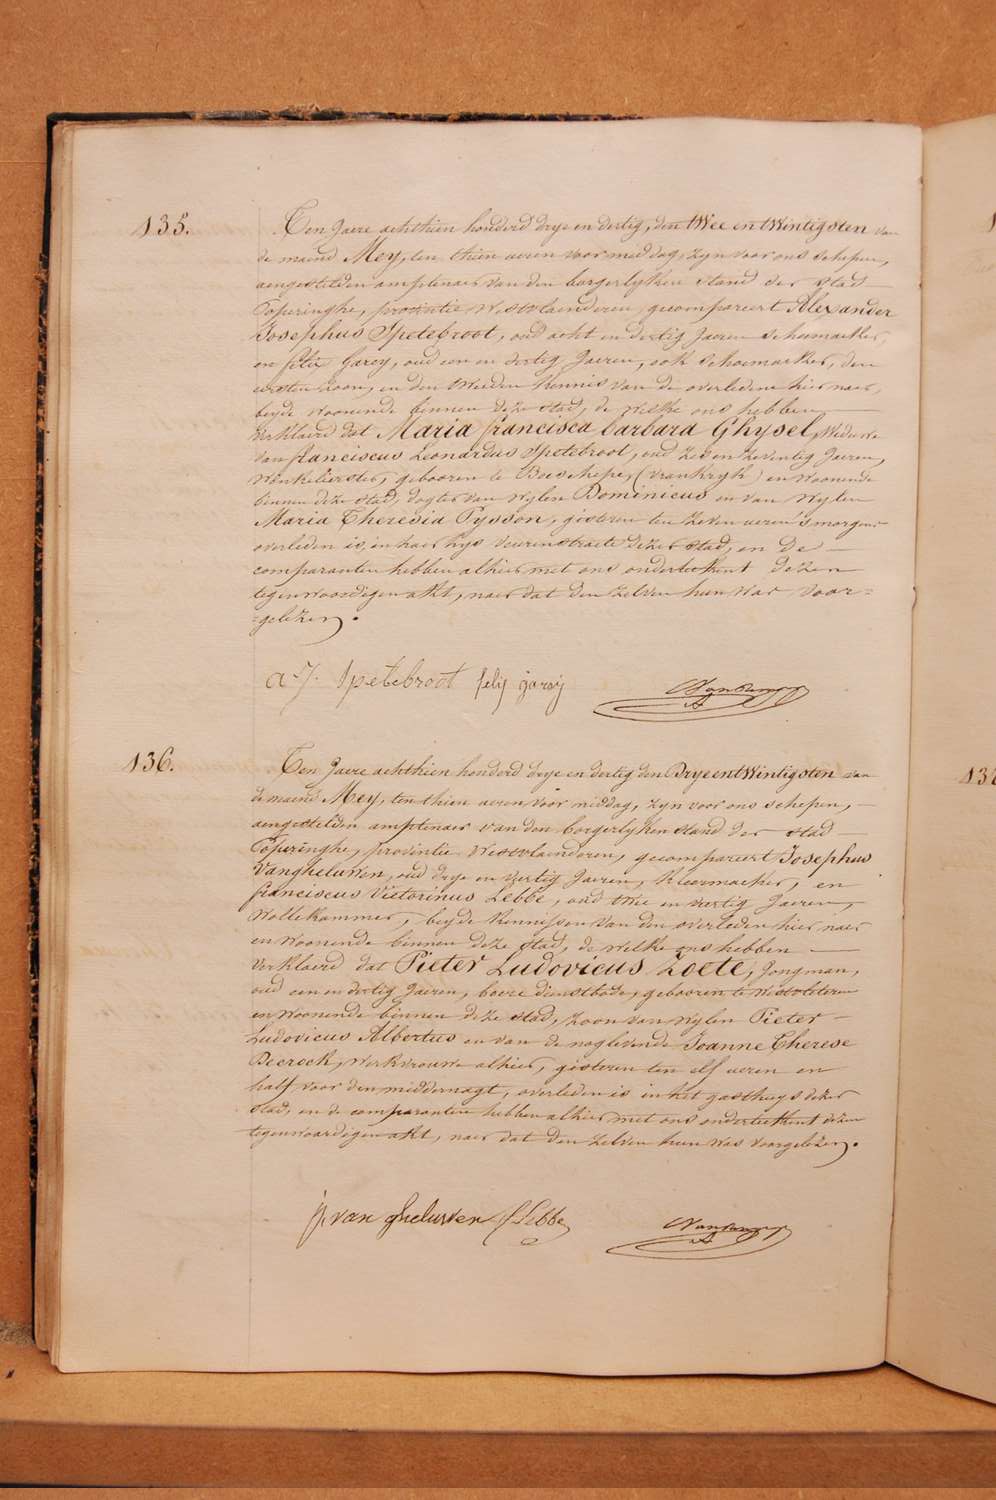 135.
Ten Jaere achthien honderd drye en dertig, den twee en twintigsten van
de maend Mey, ten thien ueren voor middag, zyn voor ons schepen,
aengestelden amptenaer van den borgerlyken stand der stad
Poperinghe, provintie Westvlaenderen, gecompareert Alexander
Josephus Spetebroot, oud acht en dertig Jaeren schoemaeker,
en felix Garoy, oud een en dertig Jaeren, ook schoemaeker, den
eersten zoon, en den tweeden kennis van de overledene hier naer,
beyde woonende binnen deze stad, de welke ons hebben
verklaerd dat Maria francisca barbara Ghysel, Weduwe
van franciscus Leonardus Spetebroot, oud zes en zeventig Jaeren,
Winkelierster, gebooren te Boeschepe, (vrankryk) en woonende
binnen deze stad, dogter van wylen Dominicus en van wylen
Maria Theresia Pysson, gisteren ten zeven ueren 's morgens
overleden is, in haer huys veurenstraete dezer stad, en de
comparanten hebben alhier met ons onderteekent dezen
tegenwoordigen akt, naer dat den zelven hun was voor=
=gelezen.
a. J. Spetebroot felix garoy
136.
Ten Jaere achthien honderd drye en dertig den Drye en twintigsten van
de maend Mey, ten thien ueren voor middag, zyn voor ons schepen,
aengestelden amptenaer van den borgerlyken stand der stad
Poperinghe, provintie Westvlaenderen, gecompareert Josephus
Vangheluwen, oud drye en veertig Jaeren, kleermaeker, en
franciscus Victorinus Lebbe, oud twee en veertig Jaeren,
Wollekammer, beyde kennissen van den overleden hier naer
en woonende binnen deze stad, de welke ons hebben
verklaerd dat Pieter Ludovicus Zoete, Jongman,
oud een en dertig Jaeren, boere dienstbode, gebooren te Westvleteren
en woonende binnen deze stad, zoon van wylen Pieter
Ludovicus Albertus en van de noglevende Joanne Therese
Decrock, werkvrouwe alhier, gisteren ten elf ueren en
half voor den middernagt, overleden is in het gasthuys dezer
stad, en de comparanten hebben alhier met ons onderteekent dezen
tegenwoordigen akt, naer dat den zelven hun was voorgelezen.
j. van gheluwen f Lebbe